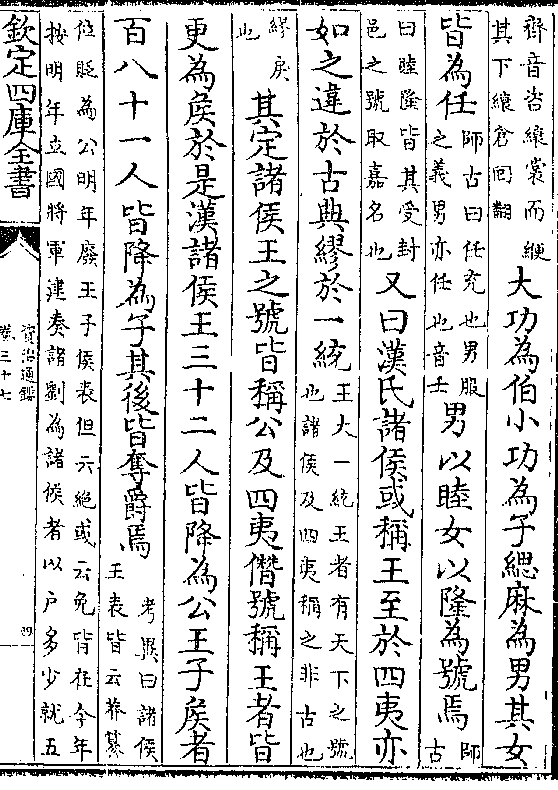 齊音咨縗裳而緶
其下縗倉回翻
大功為伯小功為子緦麻為男其女
皆為任
師古曰任充也男服
之義男亦任也音壬
男以睦女以隆為號焉
師古
曰睦隆皆其受封
邑之號取嘉名也
又曰漢氏諸侯或稱王至於四夷亦
如之違於古典繆於一統
王大一統王者有天下之號
也諸侯及四夷稱之非古也
繆戾
也
其定諸侯王之號皆稱公及四夷僭號稱王者皆
更為侯於是漢諸侯王三十二人皆降為公王子侯者
百八十一人皆降為子其後皆奪爵焉
考異曰諸侯
王表皆云莽篡
位貶為公明年廢王子侯表但云絶或云免皆在今年
按明年立國將軍建奏諸劉為諸侯者以戶多少就五
欽定四庫全書
資治通鑑
卷三十七